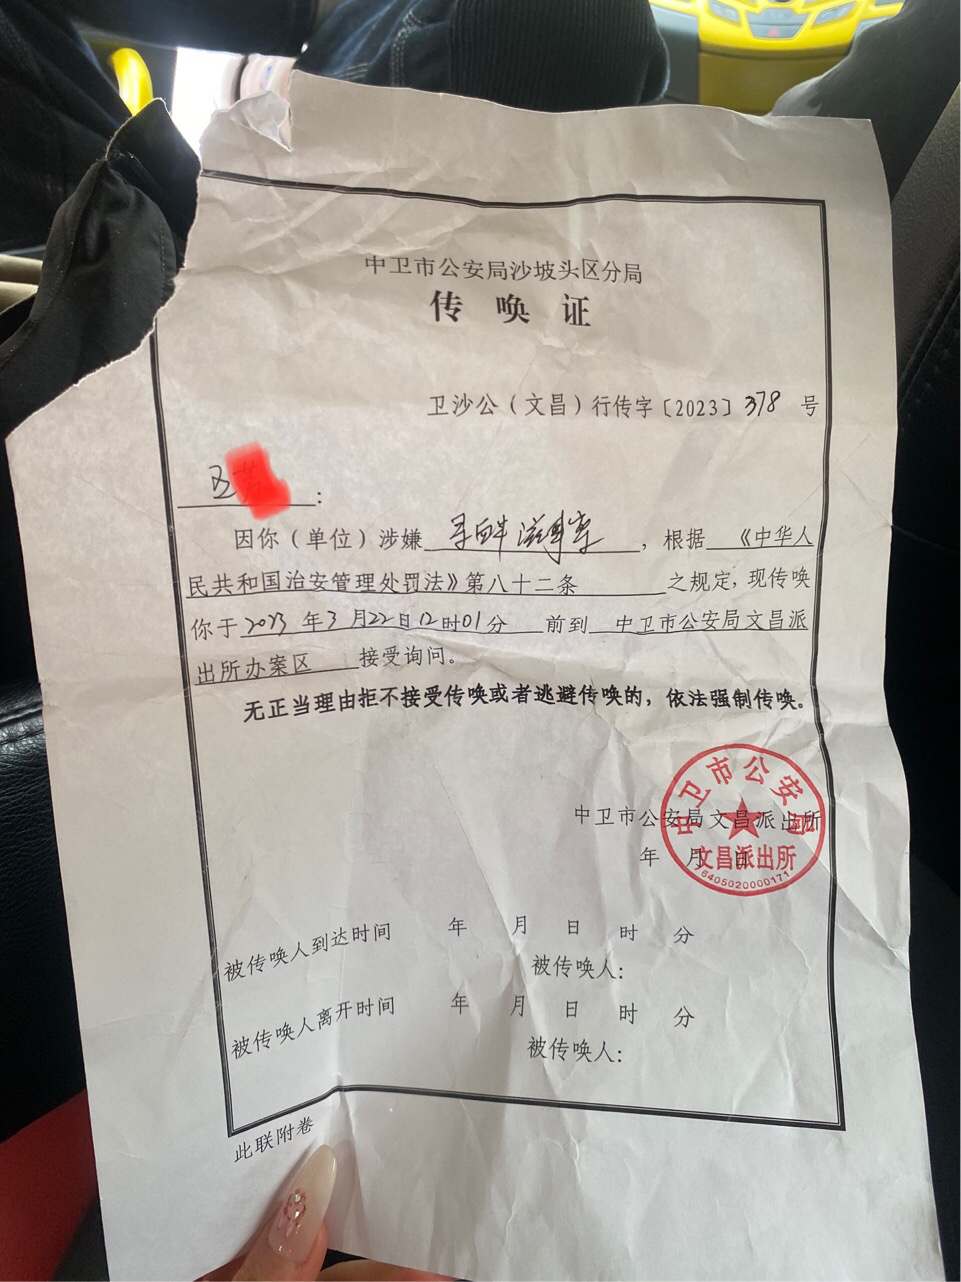 中卫市公安局沙坡头区分局
传唤证
卫沙公（文昌）行传字〔2023〕378 号
：
因你（单位）涉嫌 寻衅滋事 ，根据 《中华人
民共和国治安管理处罚法》第八十二条 之规定，现传唤
你于 2023 年 3 月 22 日 12 时 01 分 前到 中卫市公安局文昌派
出所办案区 接受询问。
无正当理由拒不接受传唤或者逃避传唤的，依法强制传唤。
中卫市公安局文昌派出所
年 月 日
中卫市公安局
文昌派出所
6405020000171
被传唤人到达时间 年 月 日 时 分
被传唤人：
被传唤人离开时间 年 月 日 时 分
被传唤人：
此联附卷